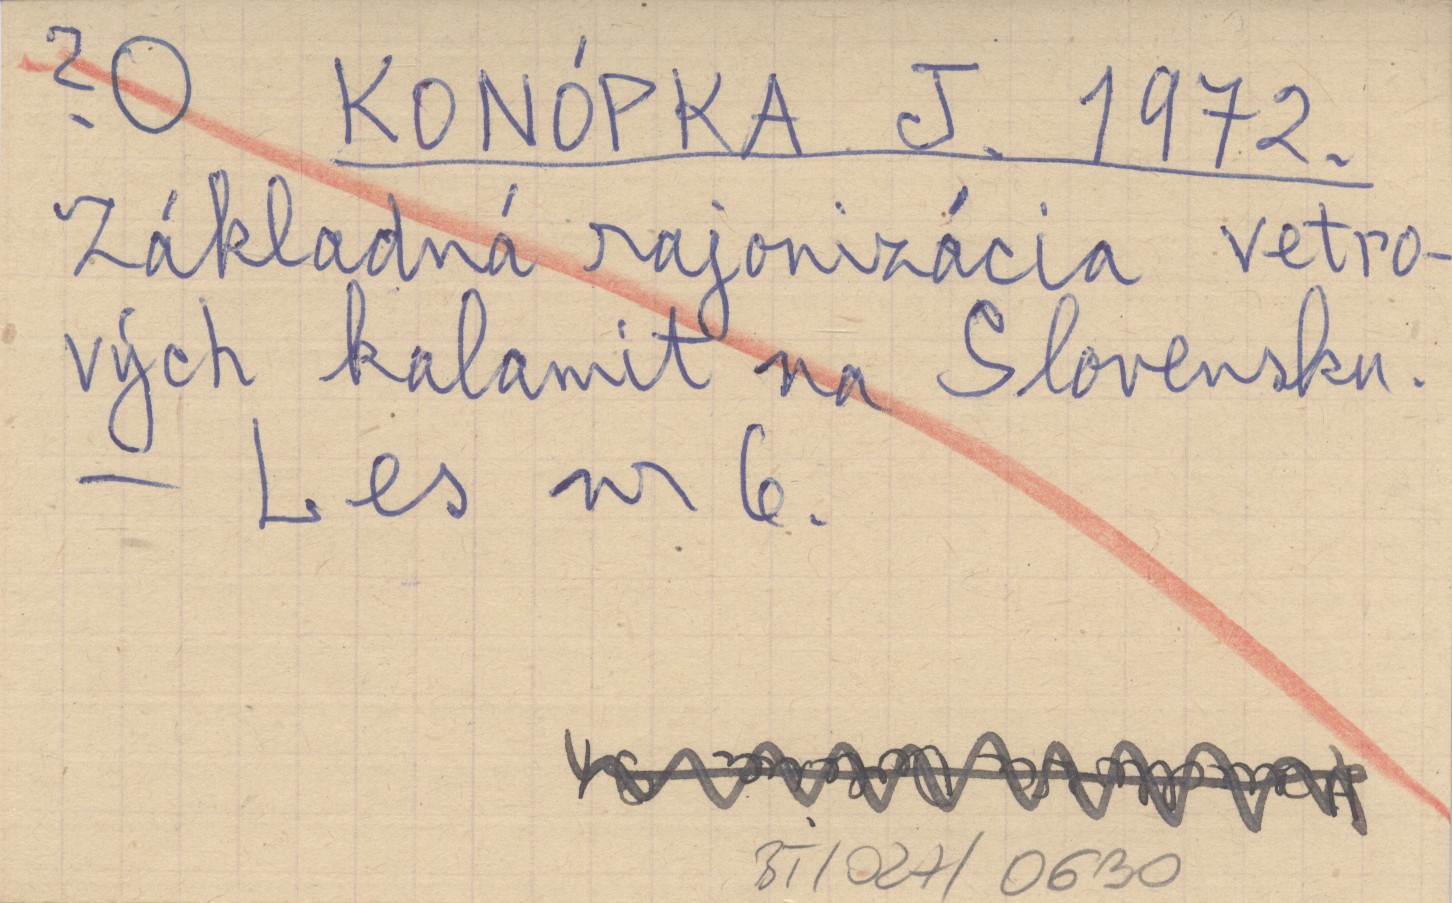 ? O KONÓPKA J. 1972.
Základná rajonizácia vetro-
vých kalamit na Slovensku.
— Les nr 6.
BI/027/0630